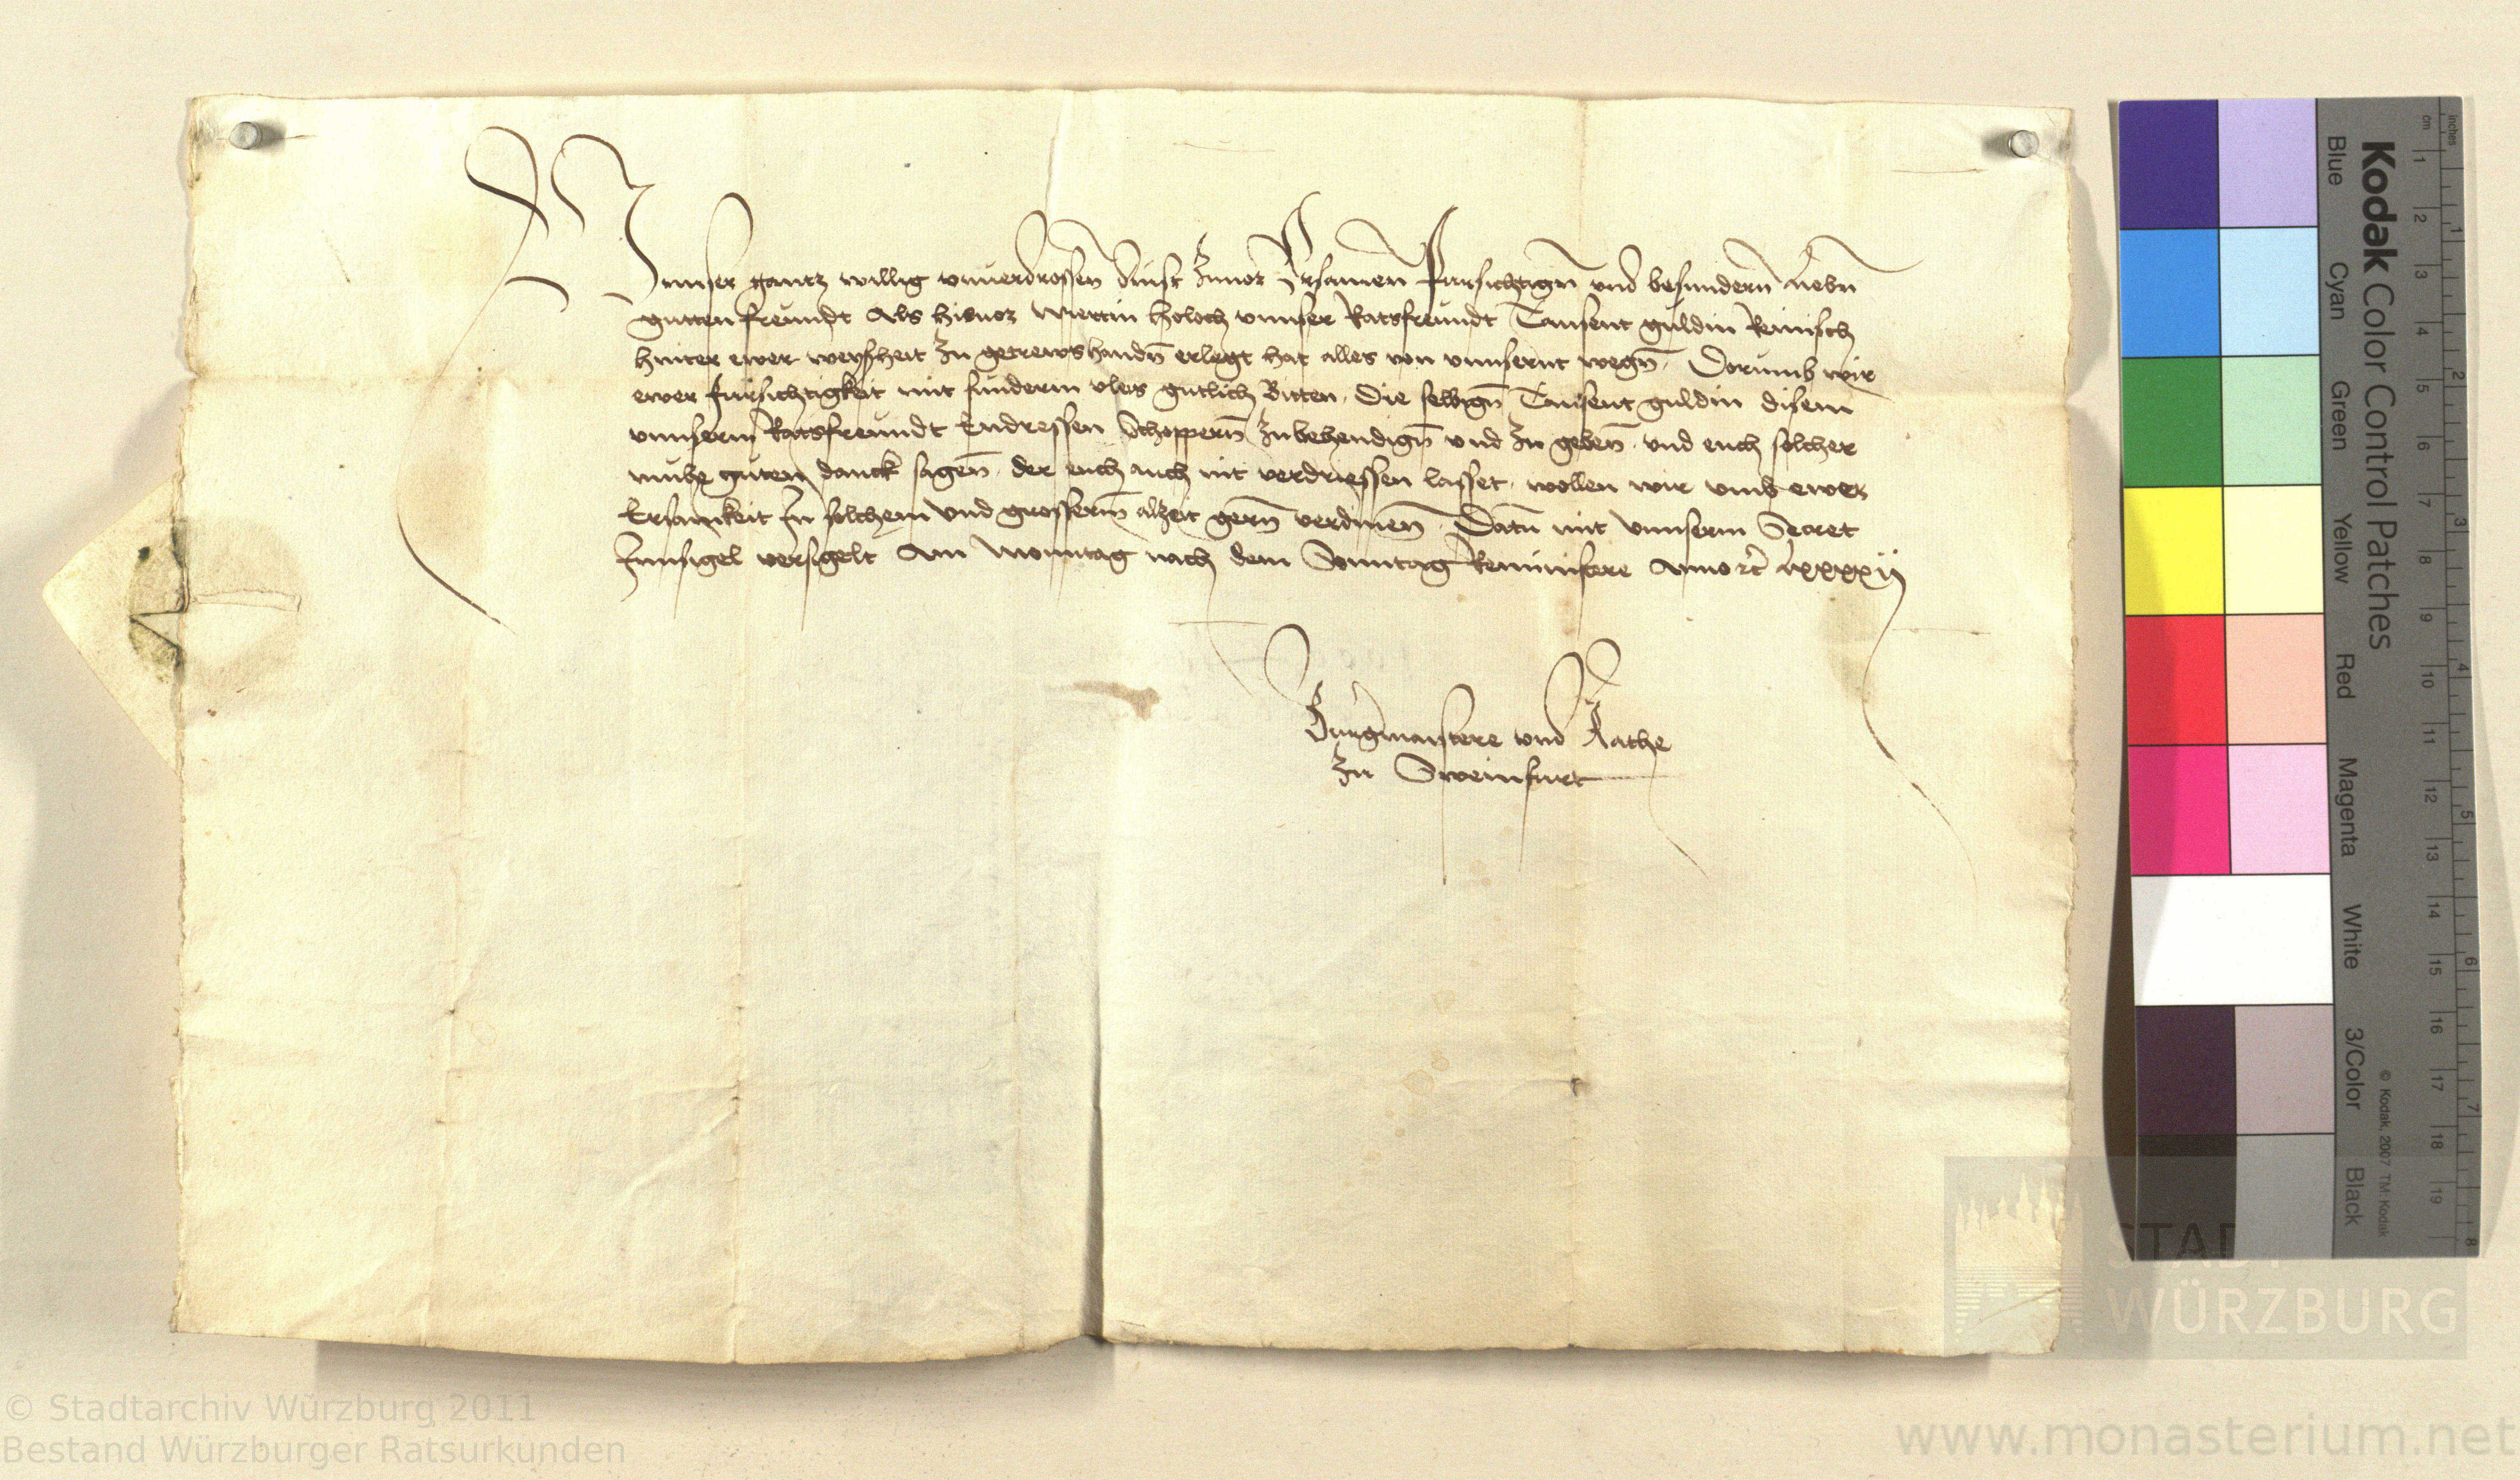 Vnnser gantz willig vnuerdrossen dinst Zuuor Ersamen Fursichtigen̄ vnd besundern̄ liebn̄
gutten freundt Als hieuor Mertin Holoch vnnser Ratsfreundt Tausent guldin Reinisch
hinter ewer weyßheit Zu getrewshandn̄ erlegt hat alles von vnnsernt wegn̄ · Dorumb wir
ewer fursichtigkeit mit sunderm vleis gutlich Bitten · Die selbign̄ Tausent guldin disem
vnnserm Ratsfreundt Endressen Schoppern̄ Zubehendign̄ vnd Zu geben̄ · vnd euch solcher
muhe guten danck sagen̄ · der euch auch nit verdriessen lasset · wollen wir vmb ewer
Ersamkeit In solchem vnd grosserm̄ alzeit gern̄ verdinen̄ · Datū mit vnnserm Secret
Innsigel versigelt Am Monntag nach dem Sonntag Reminiscere Anno rc̄ lxxxxij
Burgermaistere vnd Rathe
Zu Sweinfurt
Kodak Color Control Patches
Blue Cyan Green Yellow Red Magenta White 3/Color Black
© Kodak, 2007 TM: Kodak
cm 1 2 3 4 5 6 7 8 9 10 11 12 13 14 15 16 17 18 19
inches 1 2 3 4 5 6 7 8
STADT
WÜRZBURG
© Stadtarchiv Würzburg 2011
Bestand Würzburger Ratsurkunden
www.monasterium.net